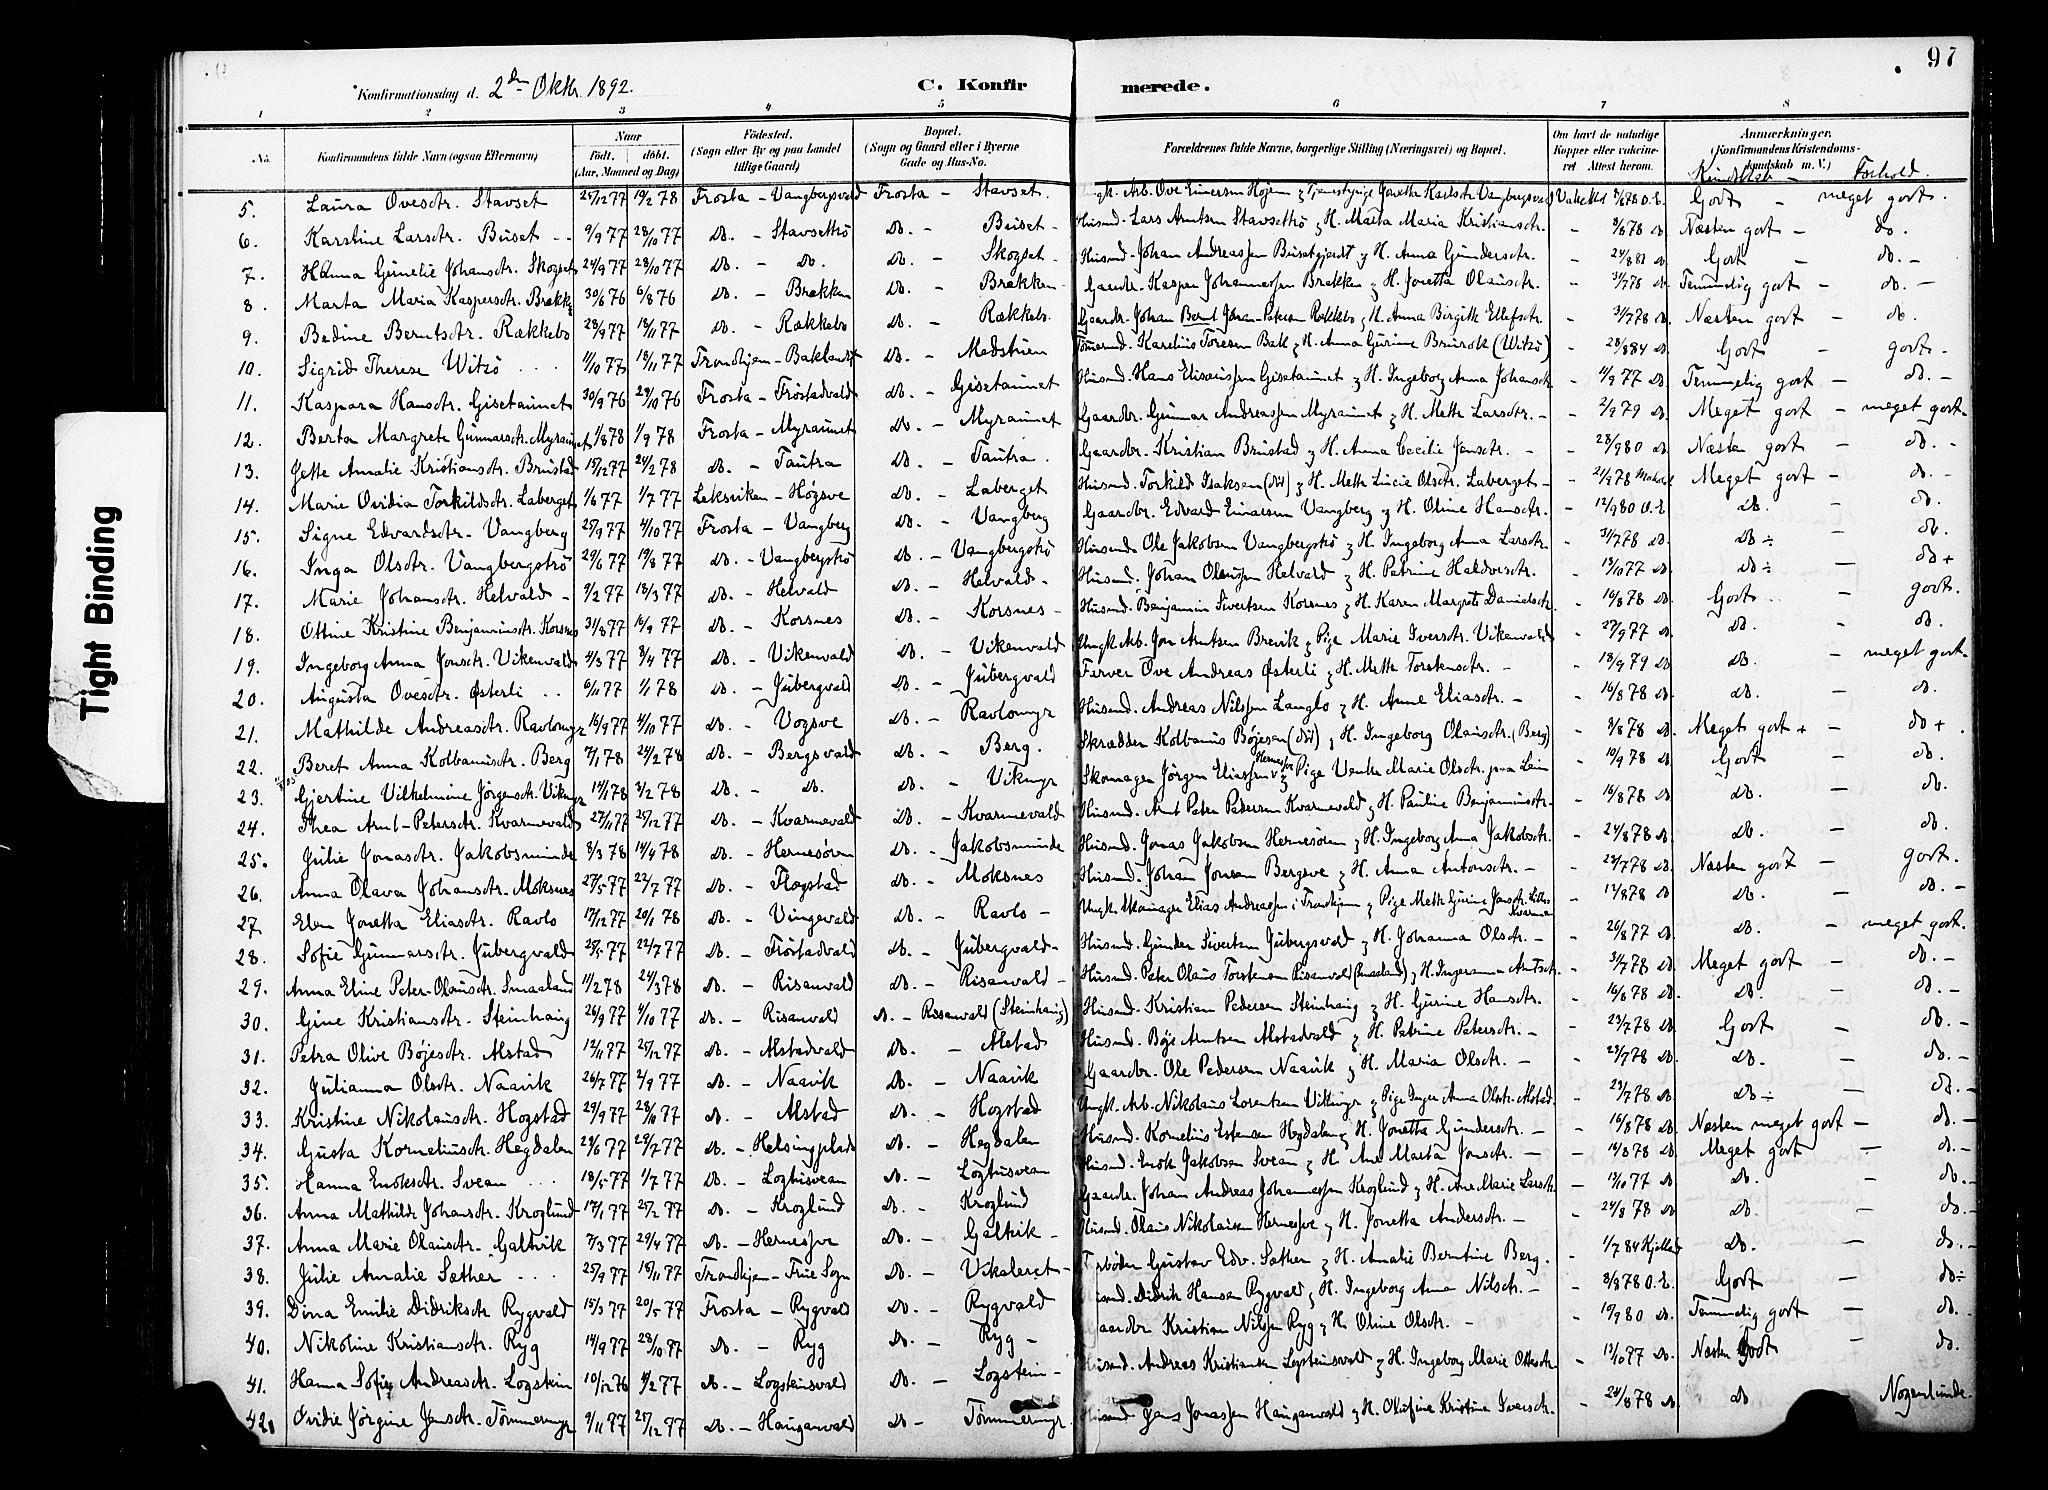 97
Konfirmationsdag d. 2den Oktbr. 1892. C. Konfirmerede.
1 2 3 4 5 6 7 8
No. Konfirmandens fulde Navn (ogsaa Efternavn) Naar født. døbt. (Aar, Maaned og Dag) Fødested. (Sogn eller By og paa Landet tillige Gaard) Bopæl. (Sogn og Gaard eller i Byerne Gade og Hus-No. Forældrenes fulde Navne, borgerlige Stilling (Næringsvei) og Bopæl. Om havt de naturlige Kopper eller vaccineret Attest herom. Anmærkninger. (Konfirmandens Kristendomskundskab m. V.) Kundskab - Forhold.
5. Laura Ovesdtr. Stavset 25/12 77 10/2 78 Frosta - Vangbergsvald Frosta - Stavset. Ungk. Arb. Ove Einersen Hojem og Tjenestepige Jonetta Karlsdtr. Vangbergsvald 3/6 78 O.E. Godt - meget godt.
6. Karstine Larsdtr. Buset 9/9 77 28/10 77 do. - Stavsettrö do. - Buset - Husmd. Lars Arntsen Stavsettrö og H. Marta Maria Kristiansdtr. - 3/6 78 do Næsten godt - do.
7. Hanna Gunelie Johansdtr. Skogset 24/9 77 28/10 77 do. - do. do. - Skogset - Husmd. Johan Andreassen Busetgjerdt og H. Anna Gundersdtr. - 24/8 82 do Godt - do. -
8. Marta Maria Kaspersdtr. Brekke 30/6 76 6/8 76 do. - Brekken do. - Brekken - Gaardbr. Kasper Johannessen Brekken og H. Jonetta Olausdtr. - 31/7 78 do. Temmelig godt - do. -
9. Bedine Berntsdtr. Rækkebo 28/9 77 18/11 77 do. - Rækkebo do. - Rækkebo. Gaardbr. Johan Bernt Johan-Petersen Rækkebo og H. Anna Birgith Ellefsdtr. - 31/7 78 do. Næsten godt - do.
10. Sigrid Therese Witsö 11/10 77 18/11 77 Trondhjem - Baklandet do. - Medstuen Tömmermd. Karelius Toresen Bak og H. Anna Gurine Brurok (Witsö) - 28/8 84 do. Godt - godt -
11. Kaspara Hansdtr. Gisetaunet 30/9 76 29/10 76 Frosta - Frostadvald do. - Gisetaunet Husmd. Hans Elisæussen Gisetaunet og H. Ingeborg Anna Johansdtr. - 11/9 77 do. Temmelig godt - do. -
12. Berta Margrete Gunnarsdtr. Myraunet 1/8 78 1/9 78 Frosta - Myraunet do. - Myraunet Gaardbr. Gunnar Andreassen Myraunet og H. Mette Larsdtr. - 2/9 79 do. Meget godt - meget godt -
13. Jette Amalie Kristiansdtr. Brustad 15/12 77 24/2 78 do. - Tautra do. - Tautra. Gaardbr. Kristian Brustad og H. Anna Cecilie Jensdtr. - 28/9 80 do. Næsten godt - do. -
14. Marie Ovidia Torkildsdtr. Laberget 1/6 77 1/7 77 Leksviken - Högsve do. - Laberget Husmd. Torkild Isaksen (död) og H. Mette Lucie Olsdtr. Laberget - 21/9 78 Meget godt - do. -
15. Signe Edvardsdtr. Vangberg 25/9 77 4/10 77 Frosta - Vangberg do. - Vangberg Gaardbr. Edvard Einarsen Vangberg og H. Oline Hansdtr. - 12/9 80 O.E. do. - do.
16. Inga Olsdtr. Vangbergströ 29/6 77 19/8 77 do. - Vangbergströ do. - Vangbergströ Husmd. Ole Jakobsen Vangbergströ og H. Ingeborg Anna Larsdtr. - 31/7 78 do. do ÷ - do.
17. Marie Johansdtr. Helvald 9/2 77 18/3 77 do. - Helvald do. - Helvald - Husmd. Johan Olaussen Helvald og H. Petrine Haldorsdtr. - 13/10 77 do. do ÷ - do +
18. Ottine Kristine Benjaminsdtr. Korsnes 31/8 77 16/9 77 do. - Korsnes do. - Korsnes - Husmd. Benjamin Sivertsen Korsnes og H. Karen Margrete Danielsdtr. - 16/8 78 do. Godt - godt.
19. Ingeborg Anna Jonsdtr. Vikenvald 2/3 77 8/4 77 do. - Vikenvald do. - Vikenvald Ungk. Arb. Jon Arntsen Brevik og Pige Marie Iversdtr. Vikenvald - 27/9 77 do. do. - do.
20. Augusta Ovesdtr. Østerli 6/11 77 1/1 78 do. - Jubergvald do. - Jubergvald Farver Ove Andreas Østerli og H. Mette Torstensdtr. - - 18/9 79 do do. - meget godt -
21. Mathilde Andreasdtr. Ravlomyr 16/9 77 4/10 77 do. - Vogsve do - Ravlomyr Husmd. Andreas Nilssen Langlo og H. Anne Eliasdtr. - - 16/8 78 do. do. - do.
22. Beret Anna Kolbanusdtr. Berg 7/1 78 24/2 78 do. - Bergsvald do. - Berg. Skrædder Kolbanus Böjesen (död) og H. Ingeborg Olausdtr. (Berg) - 8/8 78 do. Meget godt + - do + .
23. Gjertine Vilhelmine Jörgensdtr. Vikmyr 14/1 78 3/2 78 do. - do. do. - Vikmyr Skomager Jörgen Eliassen Hernessve og Pige Venke Marie Olsdtr. paa Lein - 10/9 78 do Godt - do.
24. Thea Arnt-Petersdtr. Kvarmevald 27/11 77 25/12 77 do. - Kvarmevald do. - Kvarmevald Husmd. Arnt Peter Pedersen Kvarmevald og H. Pauline Benjaminsdtr. - 16/8 78 do do. - do.
25. Julie Jonasdtr. Jakobsminde 8/3 78 14/4 78 do. - Hernesören do. - Jakobsminde Husmd. Jonas Jakobsen Hernesören og H. Ingeborg Anna Jakobsdtr. - 24/8 78 do do. - do.
26. Anna Olava Johansdtr. Moksnes 27/5 77 22/7 77 do. - Flogstad do. - Moksnes Husmd. Johan Jonsen Bergsve og H. Anna Antonsdtr. - - 23/7 78 do. Næsten godt - godt.
27. Elen Jonetta Eliasdtr. Ravlo 17/12 77 20/1 78 do - Vingevald do. - Ravlo - Ungk. Skomager Elias Andreassen i Trondhjem og Pige Mette Gurine Jensdtr. - 12/8 78 do do. - do. -
28. Sofie Gunnarsdtr. Jubergvald 25/5 77 22/7 77 do - Frostadvald do. - Jubergvald - Husmd. Gunder Sivertsen Jubergsvald og H. Johanna Olsdtr. - - 26/8 77 do. do. - meget godt.
29. Anna Eline Peter-Olausdtr. Smaaland 11/2 78 24/3 78 do. - Risanvald do. - Risanvald - Husmd. Peter Olaus Torstensen Risanvald (Smaaland) og H. Ingeranna Arntsdtr. - 31/7 78 do Meget godt - do. -
30. Gine Kristiansdtr. Steinhaug 26/9 77 4/10 77 do. - Risanvald do. - Risanvald (Steinhaug) Husmd. Kristian Pedersen Steinhaug og H. Gurine Hansdtr. - 16/8 78 do. do. - do. -
31. Petra Olive Böjesdtr. Alstad 12/11 77 25/12 77 do. - Alstadvald do. - Alstad Husmd. Böje Arntsen Alstadvald og H. Petrine Petersdtr. - - 23/7 78 do Godt - do. -
32. Julianna Olsdtr. Naavik 26/7 77 2/9 77 do. - Naavik do. - Naavik Gaardbr. Ole Pedersen Naavik og H. Maria Olsdtr. - - 23/7 78 do. do. - do. -
33. Kristine Nikolausdtr. Hogstad 29/9 77 28/10 77 do. - Alstad do - Hogstad Ungk. Arb. Nikolaus Lorentsen Vikmyr og Pige Inger Anna Olsdtr. Alstad. - 23/7 78 do do ÷ - do. -
34. Gusta Korneliusdtr. Hegdalen 23/6 77 29/7 77 do. - Helsingplads do. - Hegdalen Husmd. Kornelius Estensen Hegdalen og H. Jonetta Gundersdtr. - - 16/8 78 do Næsten meget godt - do. -
35. Hanna Enoksdtr. Svean 18/5 77 1/7 77 do. - Logtusvean do. - Logtusvean Husmd. Enok Jakobsen Svean og H. Ane Marta Jonsdtr. - - 16/8 78 do Meget godt - do. -
36. Anna Mathilde Johansdtr. Kroglund 17/1 77 25/2 77 do. - Kroglund do. - Kroglund Gaardbr. Johan Andreas Johannessen Kroglund og H. Ane Marie Larsdtr. - 13/10 77 do do. - do. -
37. Anna Marie Olausdtr. Galtvik 7/3 77 29/4 77 do. - Hernessve do. - Galtvik - Husmd. Olaus Nikolaisen Hernessve og H. Jonetta Andersdtr. - - 24/8 78 do do - do -
38. Julie Amalie Sæther 25/9 77 18/11 77 Trondhjem - Frue Sogn do. - Vikaleret - Gustav Edv. Sæther og H. Amalie Berntine Berg. - 1/7 84 do. - do. -
39. Dina Emilie Didriksdtr Rygvald 15/3 77 20/5 77 Frosta - Rygvald do. - Rygvald Husmd. Didrik Hansen Rygvald og H. Ingeborg Anna Nilsdtr. - - 8/8 78 O.E. Godt - do ÷
40. Nikoline Kristiansdtr. Ryg 14/9 77 28/10 77 do - Ryg do. - Ryg - Gaardbr Kristian Nilssen Ryg og H. Oline Olsdtr. - - 10/9 80 do. Temmelig godt - do.
41. Hanna Sofie Andreasdtr. Logstein 10/12 76 4/2 77 do. - Logsteinsvald do. - Logstein - Husmd. Andreas Kristiansen Logsteinsvald og H. Ingeborg Marie Ottesdtr. - 13/10 77 do. Næsten Godt - do.
42. Ovidie Jörgine Jensdtr. Tömmermyr 9/11 77 25/12 77 do. - Hauganvald do - Tömmermyr Husmd. Jens Jonassen Hauganvald og H. Olufine Kristine Iversdtr. - 24/8 78 do do - Nogenlunde.
Tight Binding